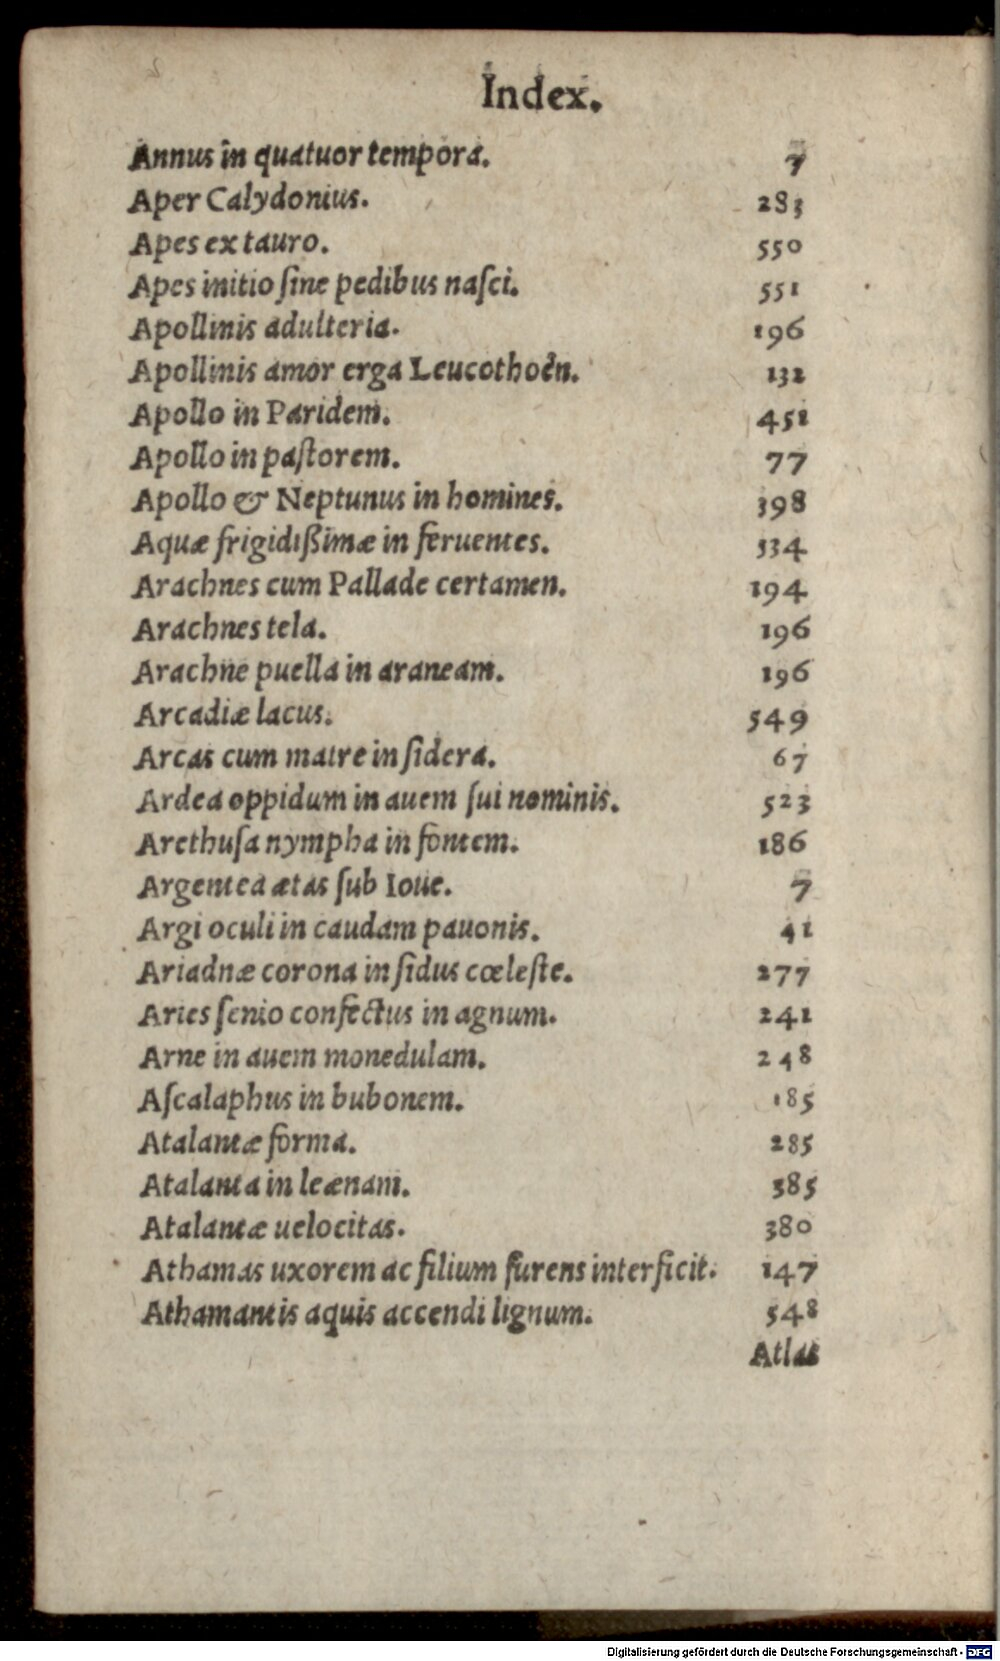 Index.
Annus in quatuor tempora. 7
Aper Calydonius. 283
Apes ex tauro. 550
Apes initio ſine pedibus naſci. 551
Apollinis adulteria. 196
Apollinis amor erga Leucothoën. 132
Apollo in Paridem. 451
Apollo in paſtorem. 77
Apollo & Neptunus in homines. 398
Aquæ frigidißimæ in feruentes. 534
Arachnes cum Pallade certamen. 194
Arachnes tela. 196
Arachne puella in araneam. 196
Arcadiæ lacus. 549
Arcas cum matre in ſidera. 67
Ardea oppidum in auem ſui nominis. 523
Arethuſa nympha in fontem. 186
Argentea ætas ſub Ioue. 7
Argi oculi in caudam pauonis. 41
Ariadnæ corona in ſidus cœleſte. 277
Aries ſenio confectus in agnum. 241
Arne in auem monedulam. 248
Aſcalaphus in bubonem. 185
Atalantæ forma. 285
Atalanta in leænam. 385
Atalantæ uelocitas. 380
Athamas uxorem ac filium furens interficit. 147
Athamantis aquis accendi lignum. 548
Atlas
Digitalisierung gefördert durch die Deutsche Forschungsgemeinschaft - DFG